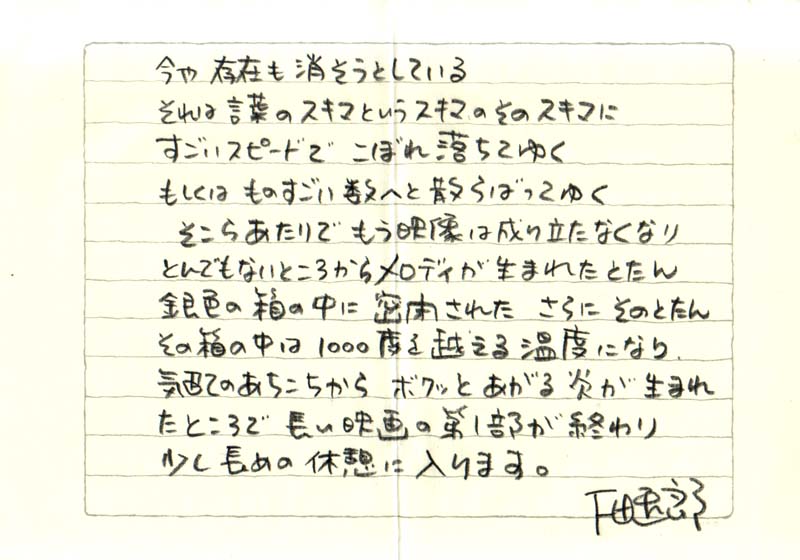 今や 存在も 消そうとしている
それは言葉のスキマというスキマのそのスキマに
すごいスピードで こぼれ落ちてゆく
もしくは ものすごい数へと散らばってゆく
そこらあたりで もう映像は成り立たなくなり
とんでもないところからメロディが生まれたとたん
銀色の箱の中に密閉された さらに そのとたん
その箱の中は1000度を越える温度になり
気配のあちこちから ボワッとあがる 炎が生まれ
たところで 長い映画の第1部が終わり
少し長めの休憩に入ります。
下田逸郎